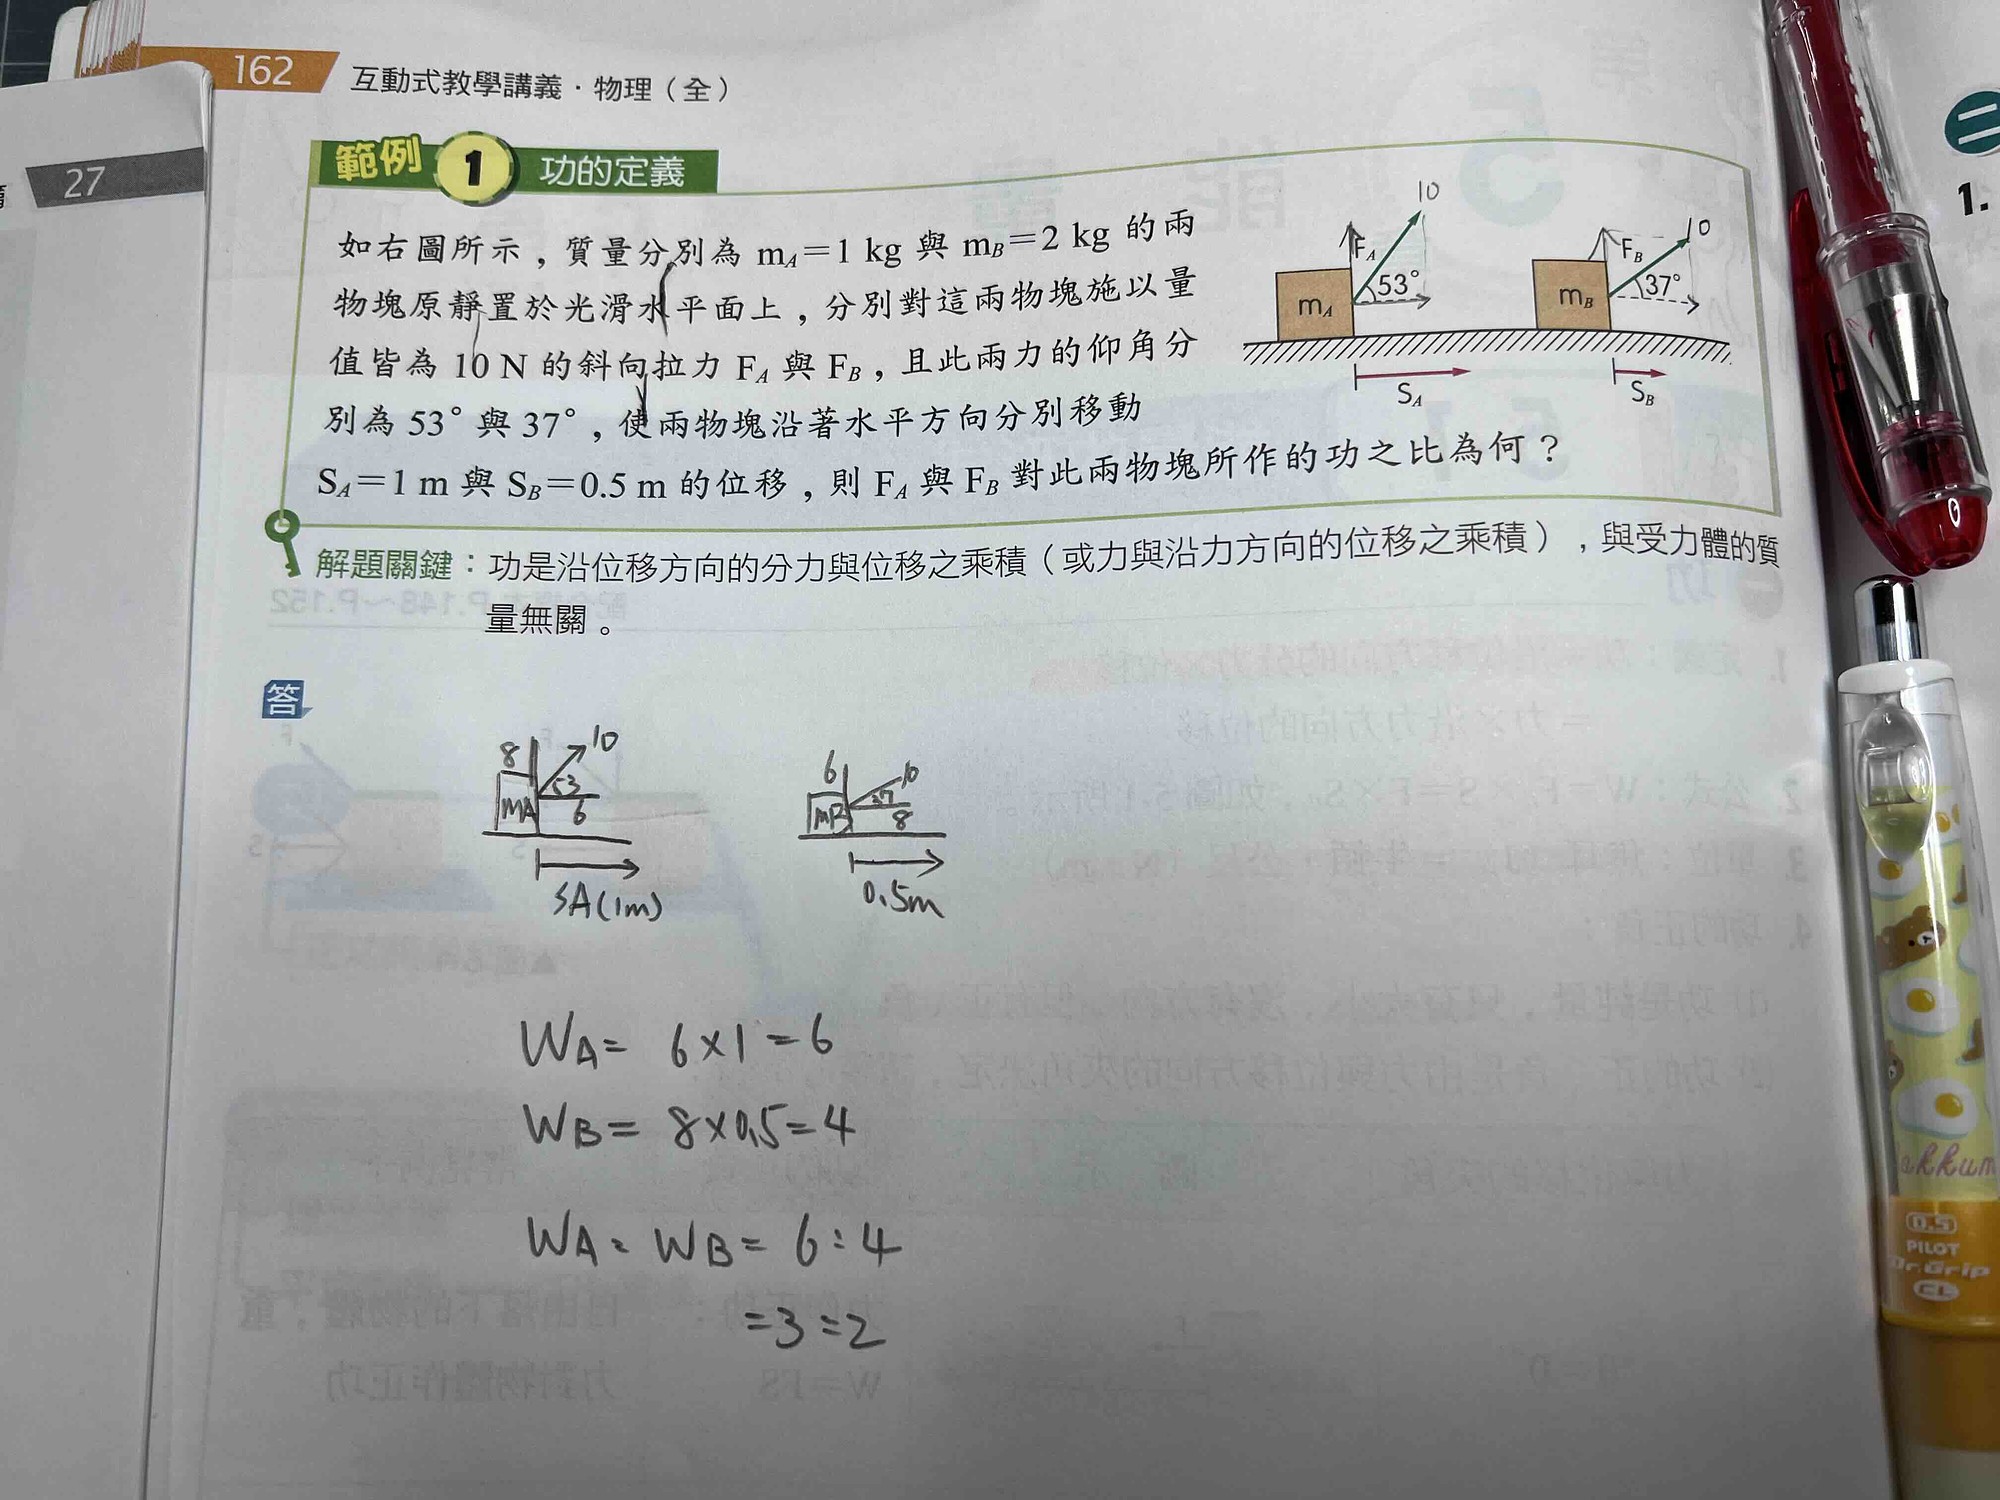 162
互動式教學講義・物理（全）
27
範例 1 功的定義
如右圖所示，質量分別為 mA＝1 kg 與 mB＝2 kg 的兩
物塊原靜置於光滑水平面上，分別對這兩物塊施以量
值皆為 10 N 的斜向拉力 FA 與 FB，且此兩力的仰角分
別為 53° 與 37°，使兩物塊沿著水平方向分別移動
SA＝1 m 與 SB＝0.5 m 的位移，則 FA 與 FB 對此兩物塊所作的功之比為何？
10
FA
53°
mA
SA
10
FB
37°
mB
SB
解題關鍵：功是沿位移方向的分力與位移之乘積（或力與沿力方向的位移之乘積），與受力體的質
量無關。
答
8 10
53
mA 6
SA(1m)
6 10
37
mB 8
0.5m
WA= 6×1=6
WB= 8×0.5=4
WA: WB= 6:4
=3:2
二
1.
akkum
0.5
PILOT
Dr.Grip
CL